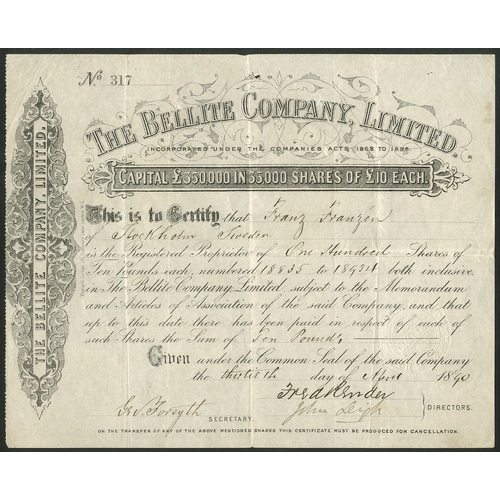 No 317
THE BELLITE COMPANY, LIMITED.
THE BELLITE COMPANY, LIMITED.
INCORPORATED UNDER THE COMPANIES ACTS, 1862 TO 1886.
CAPITAL £350,000 IN 35,000 SHARES OF £10 EACH.
This is to Certify that Franz Franzén
of Stockholm Sweden
is the Registered Proprietor of One Hundred Shares of
Ten pounds each, numbered 18835 to 18934 both inclusive
in The Bellite Company Limited, subject to the Memorandum
and Articles of Association of the said Company, and that
up to this date there has been paid in respect of each of
such Shares the Sum of Ten Pounds
Given under the Common Seal of the said Company
the thirtieth day of April 1890
Fredk
Forsyth John Leigh
SECRETARY. DIRECTORS.
ON THE TRANSFER OF ANY OF THE ABOVE MENTIONED SHARES THIS CERTIFICATE MUST BE PRODUCED FOR CANCELLATION.